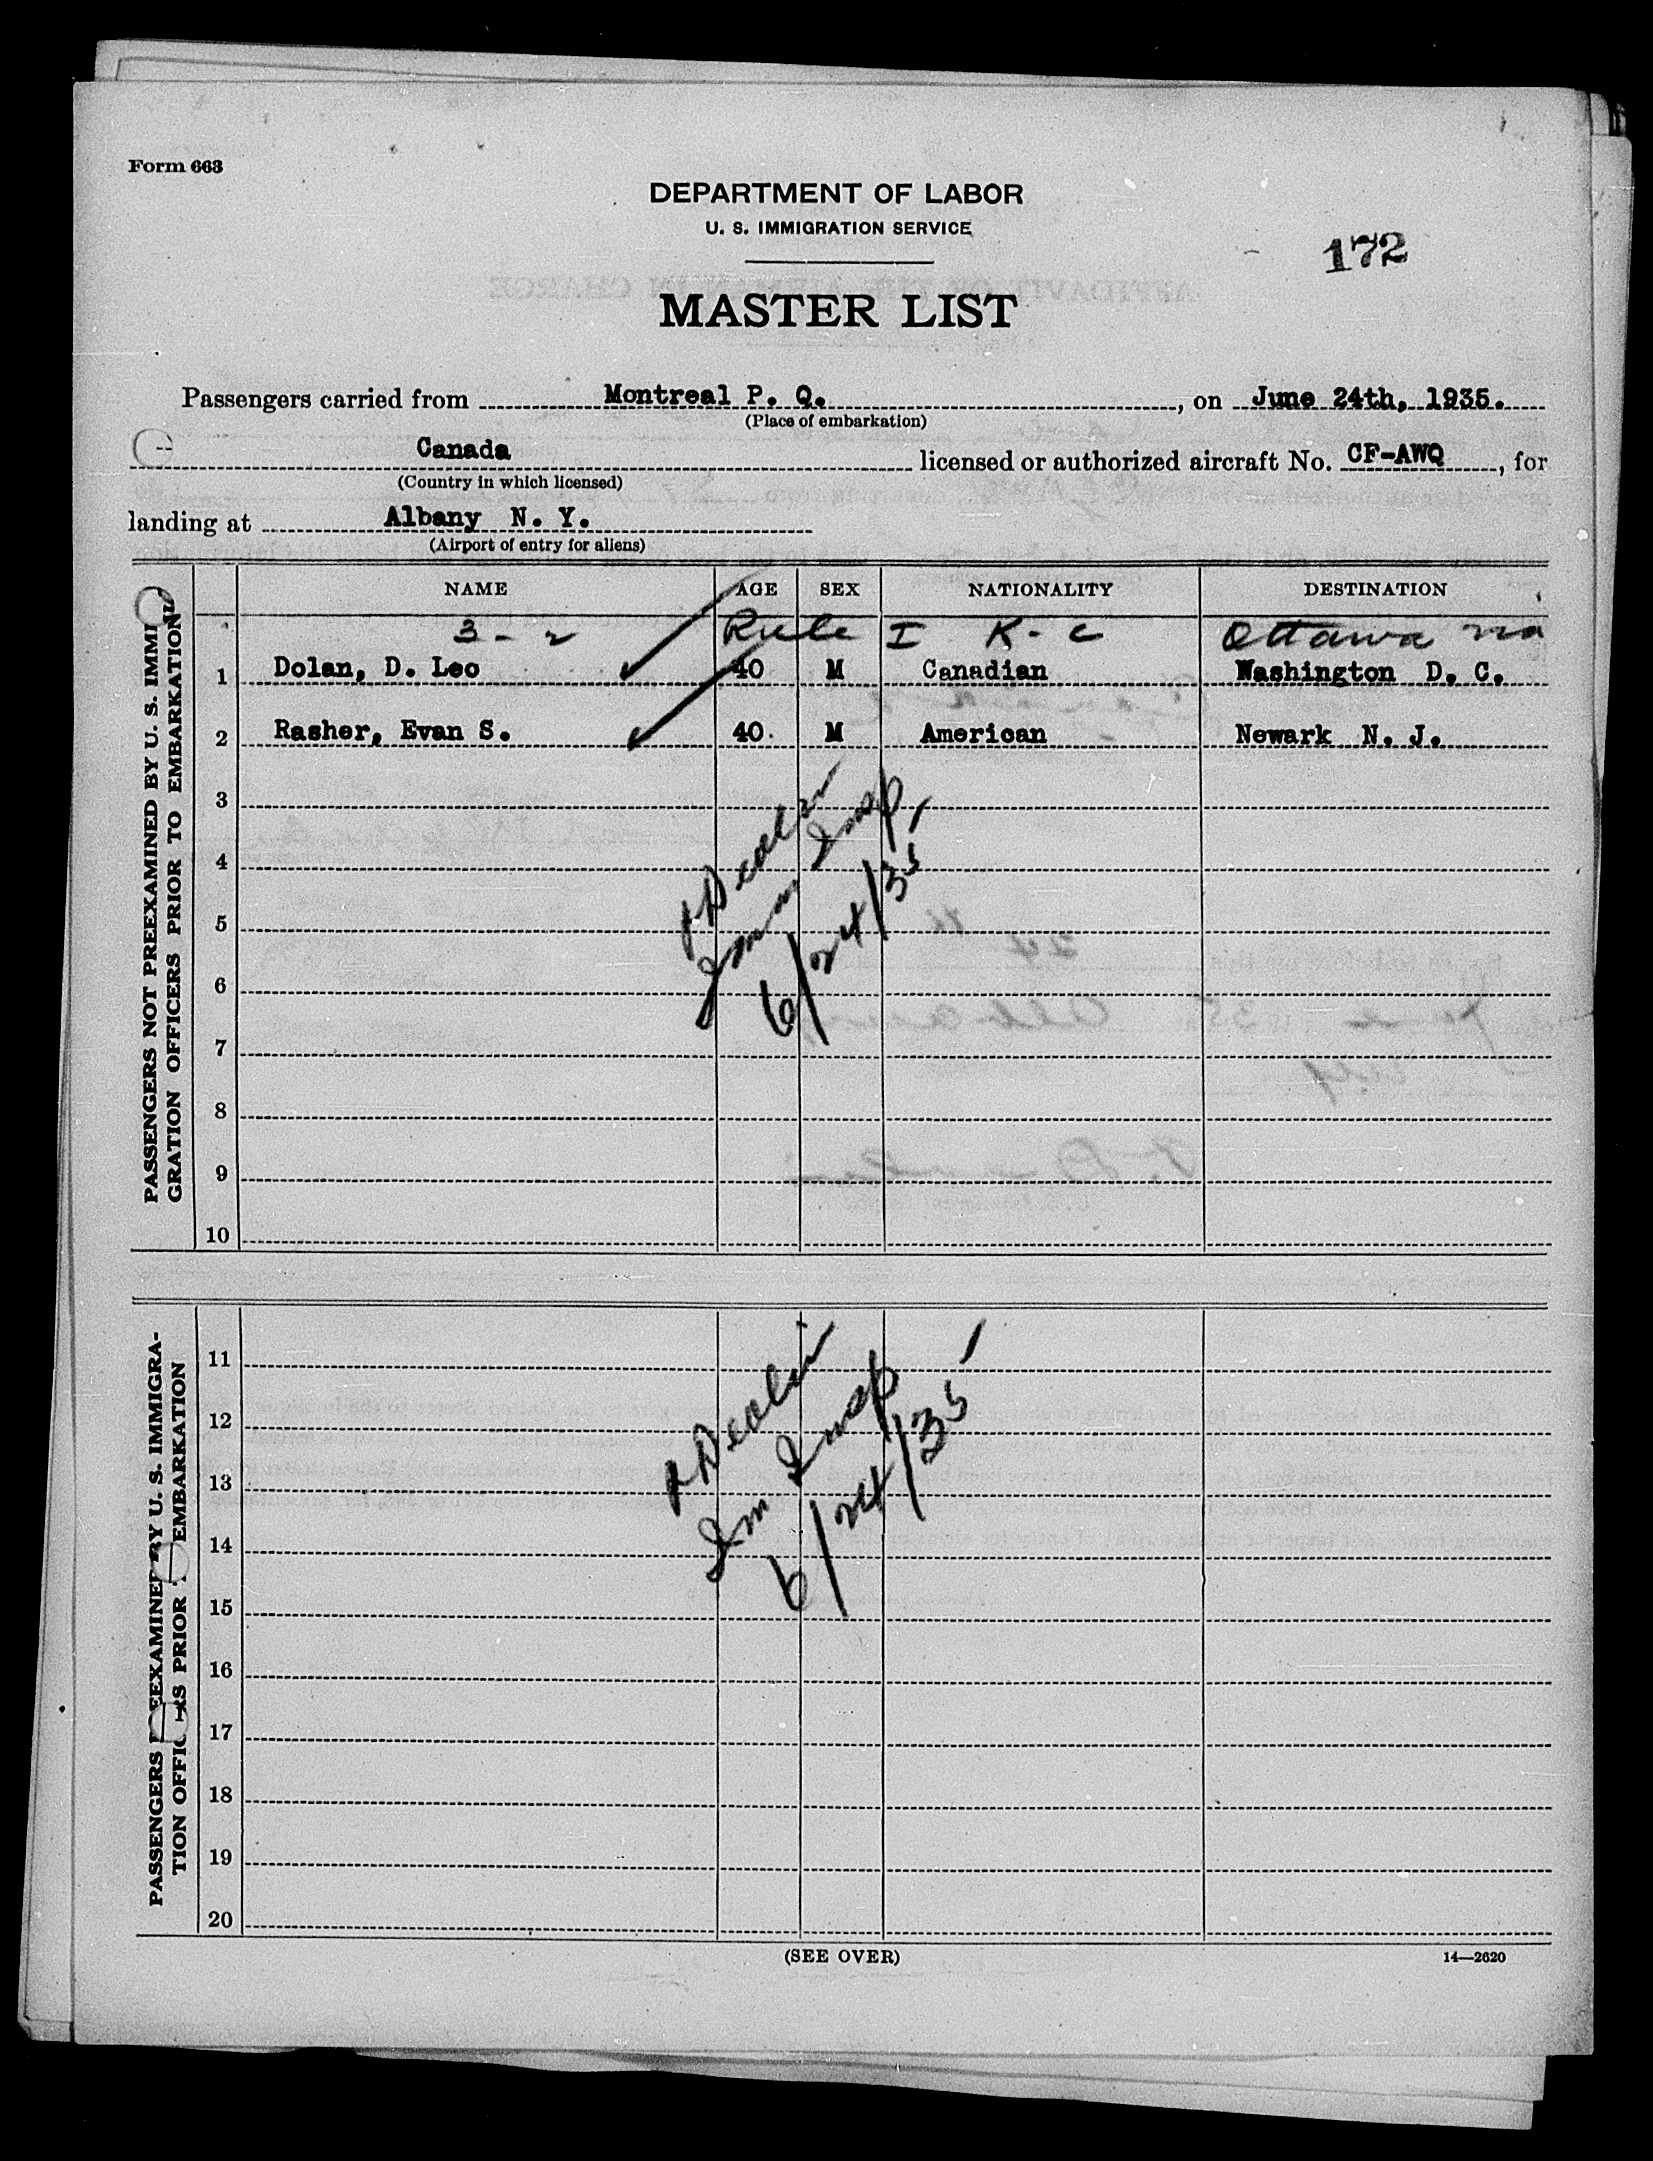 Form 663
DEPARTMENT OF LABOR
U. S. IMMIGRATION SERVICE
172
MASTER LIST
Passengers carried from Montreal P. Q., on June 24th, 1935.
(Place of embarkation)
-- Canada licensed or authorized aircraft No. CF-AWQ, for
(Country in which licensed)
landing at Albany N. Y.
(Airport of entry for aliens)
PASSENGERS NOT PREEXAMINED BY U. S. IMMI
GRATION OFFICERS PRIOR TO EMBARKATION
NAME AGE SEX NATIONALITY DESTINATION
3-2 Rule I K-C Ottawa
1 Dolan, D. Leo 40 M Canadian Washington D. C.
2 Rasher, Evan S. 40. M American Newark N. J.
3
4
5
6
7
8
9
10
Imm Insp
6/24/35
PASSENGERS PREEXAMINED BY U. S. IMMIGRA-
TION OFFICERS PRIOR TO EMBARKATION
11
12
13
14
15
16
17
18
19
20
Imm Insp
6/24/35
(SEE OVER)
14—2620